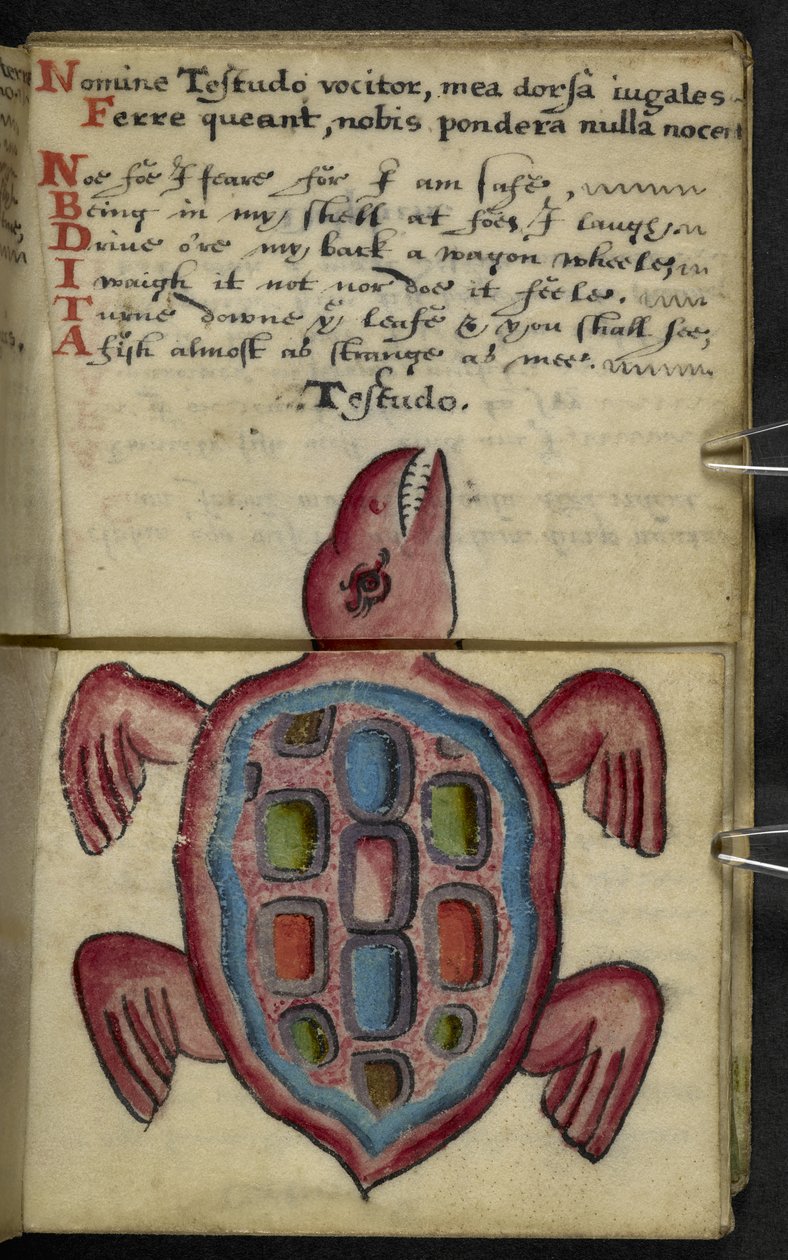 Nomine Testudo vocitor, mea dorsa iugales
Ferre queant, nobis pondera nulla nocent
Noe foe I feare for I am safe,
Being in my shell at foes I laugh,
Drive o're my back a wagon wheele,
I waigh it not nor doe it feele.
Turne downe ye leafe & you shall see,
A fish almost as strange as mee.
Testudo.